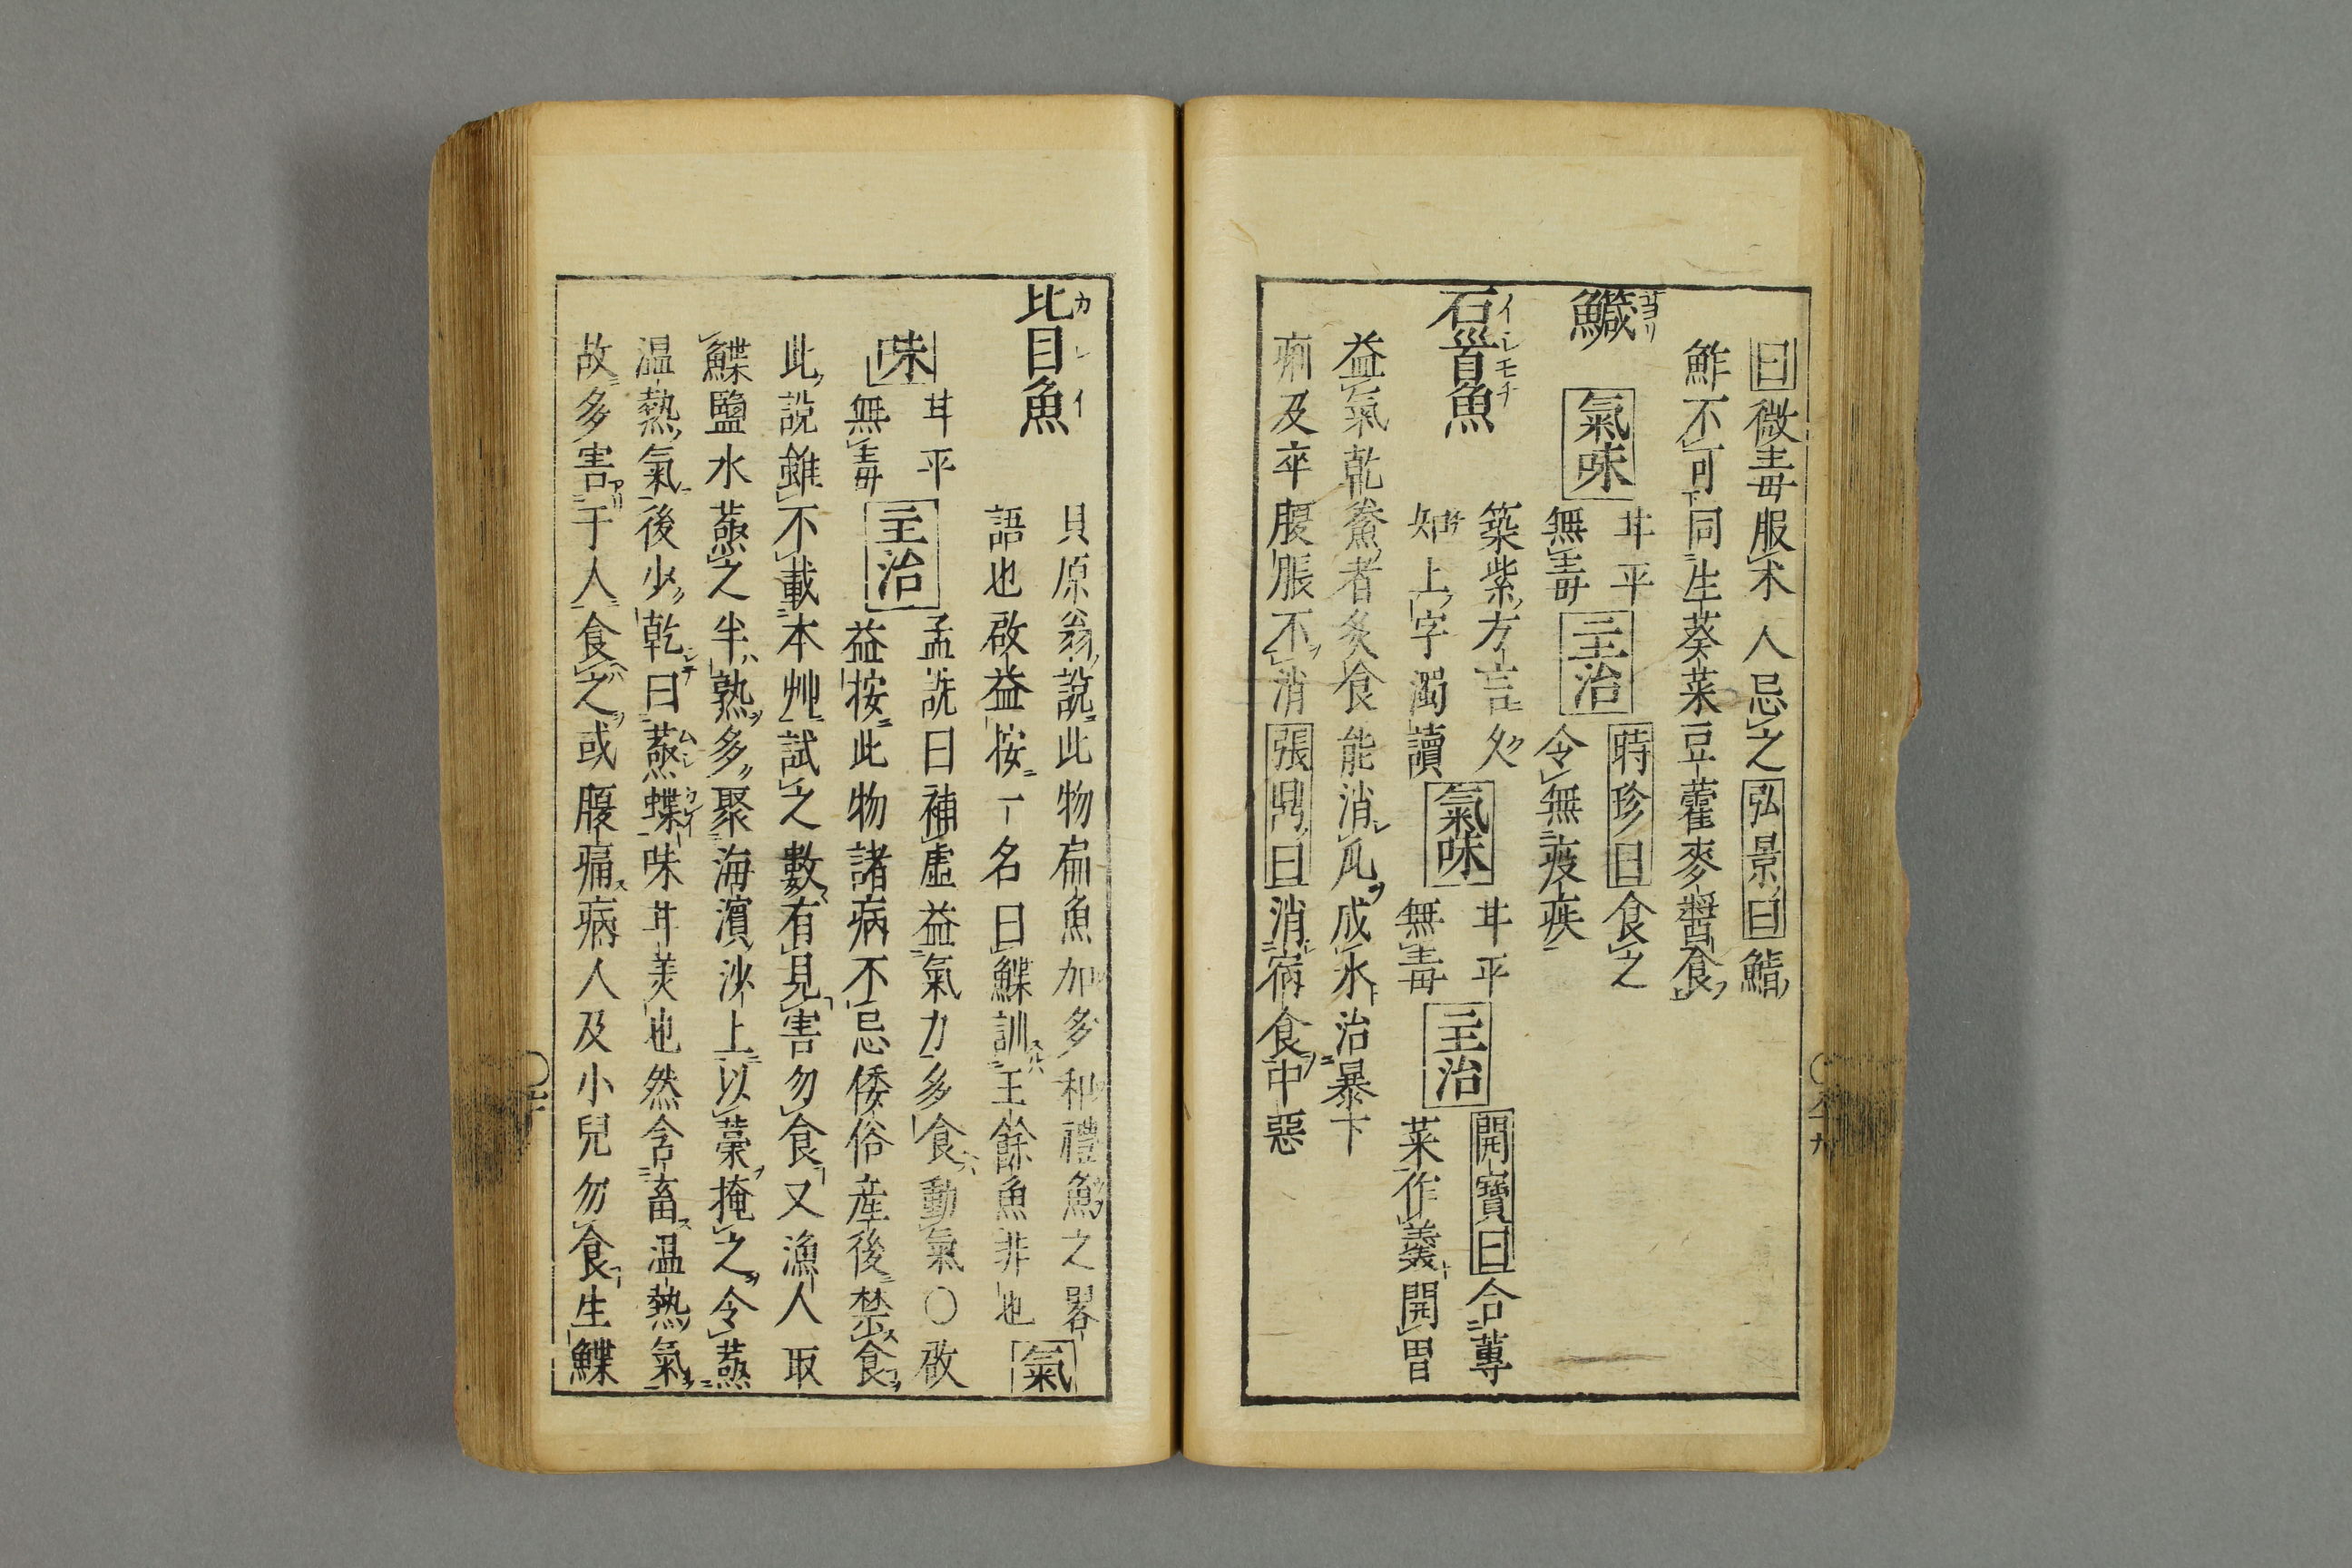 曰微毒服朮人忌之弘景曰鯔
鮓不可同生葵菜豆藿麥醬食
鱵 氣味 甘平無毒 主治 時珍曰食之令無疫疾
石首魚 築紫方言久知上字濁讀 氣味 甘平無毒 主治 開寶曰合蓴菜作羹開胃
益氣乾鮝者炙食能消瓜成水治暴下
痢及卒腹脹不消張鼎曰消宿食中惡
比目魚 貝原翁說此物扁魚加多和禮魚之畧
語也啟益按一名曰鰈訓王餘魚非也 氣
味 甘平無毒 主治 孟詵曰補虛益氣力多食動氣〇啟
益按此物諸病不忌倭俗産後禁食
此說雖不載本艸試之數有見害勿食又漁人取
鰈鹽水蒸之半熟多聚海濱沙上以藁掩之令蒸
温熱氣後少乾曰蒸蝶味甘美也然含畜温熱氣
故多害于人食之或腹痛病人及小兒勿食生鰈